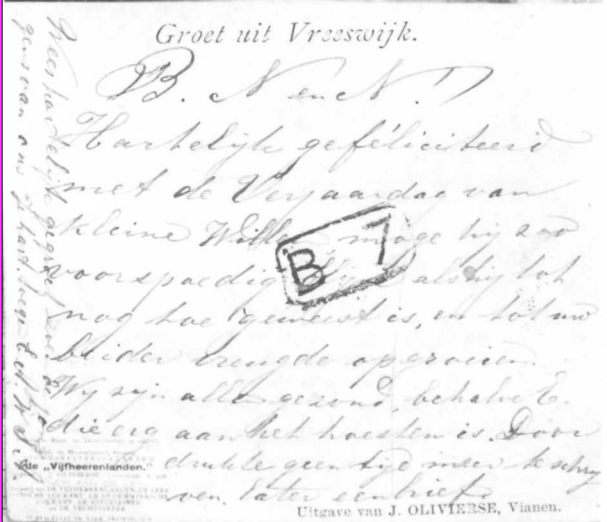 Groet uit Vreeswijk.
B. N en N.
Hartelijk gefeliciteerd
met de Verjaardag van
kleine Willem moge hij zoo
voorspoedig als hij tot
nog toe geweest is, en tot uw
beider vreugde opgroeien.
Wij zijn allen gezond, behalve E.
die erg aan het hoesten is. Door
drukte geen tijd meer te schrij
ven. Later een brief.
B 7
de „Vijfheerenlanden."
Uitgave van J. OLIVIERSE, Vianen.
Wees hartelijk gegroet
van ons